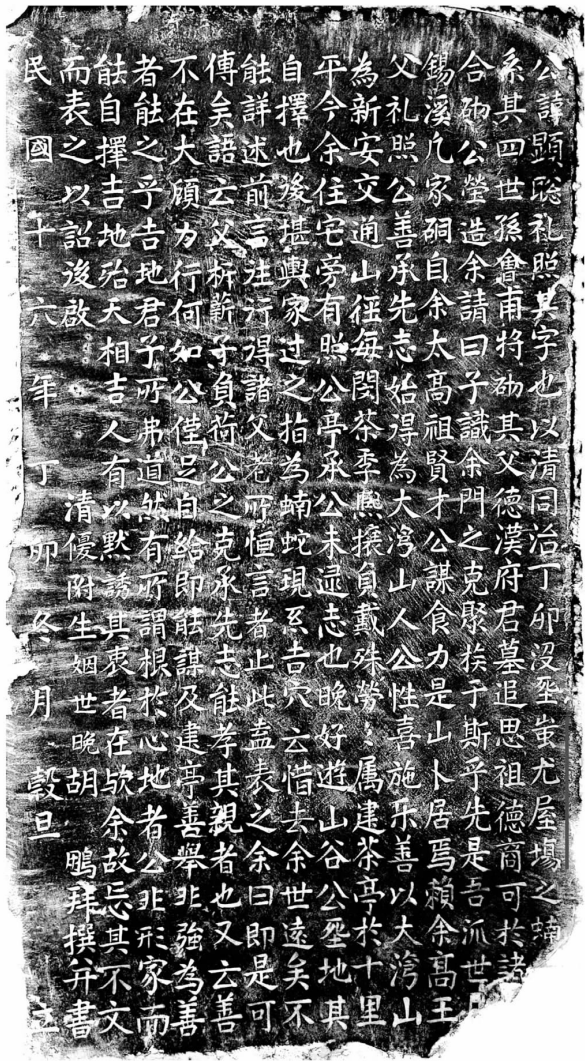 公諱顕聡礼照其字也以清同治丁卯沒塟蚩尤屋場之蝻
系其四世孫會甫將砌其父德漢府君墓追思祖德商可於諸
合砌公塋造余請曰子識余門之克聚族于斯乎先是吾派世
錫溪凡家嗣自余太高祖賢才公謀食力是山卜居焉賴余高王
父礼照公善承先志始得為大湾山人公性喜施乐善以大湾山
為新安交通山徑每閔茶季熙攘負戴殊勞々属建茶亭於十里
平今余住宅旁有照公亭承公未逮志也晚好遊山谷公塟地其
自擇也後堪輿家过之指為蝻蛇現系吉穴云惜去余世遠矣不
能詳述前言往行得諸父老所恒言者止此盍表之余曰即是可
傳矣語云父析薪子負荷公之克承先志能孝其親者也又云善
不在大顧力行何如公僅足自給即能謀及建亭善舉非強為善
者能之乎吉地君子所弗道然有所謂根於心地者公非形家而
能自擇吉地殆天相吉人有以默誘其衷者在欤余故忘其不文
而表之以詔後啟
清優附生姻世晚胡鵬拜撰并書
民國十六年丁卯冬月穀旦立